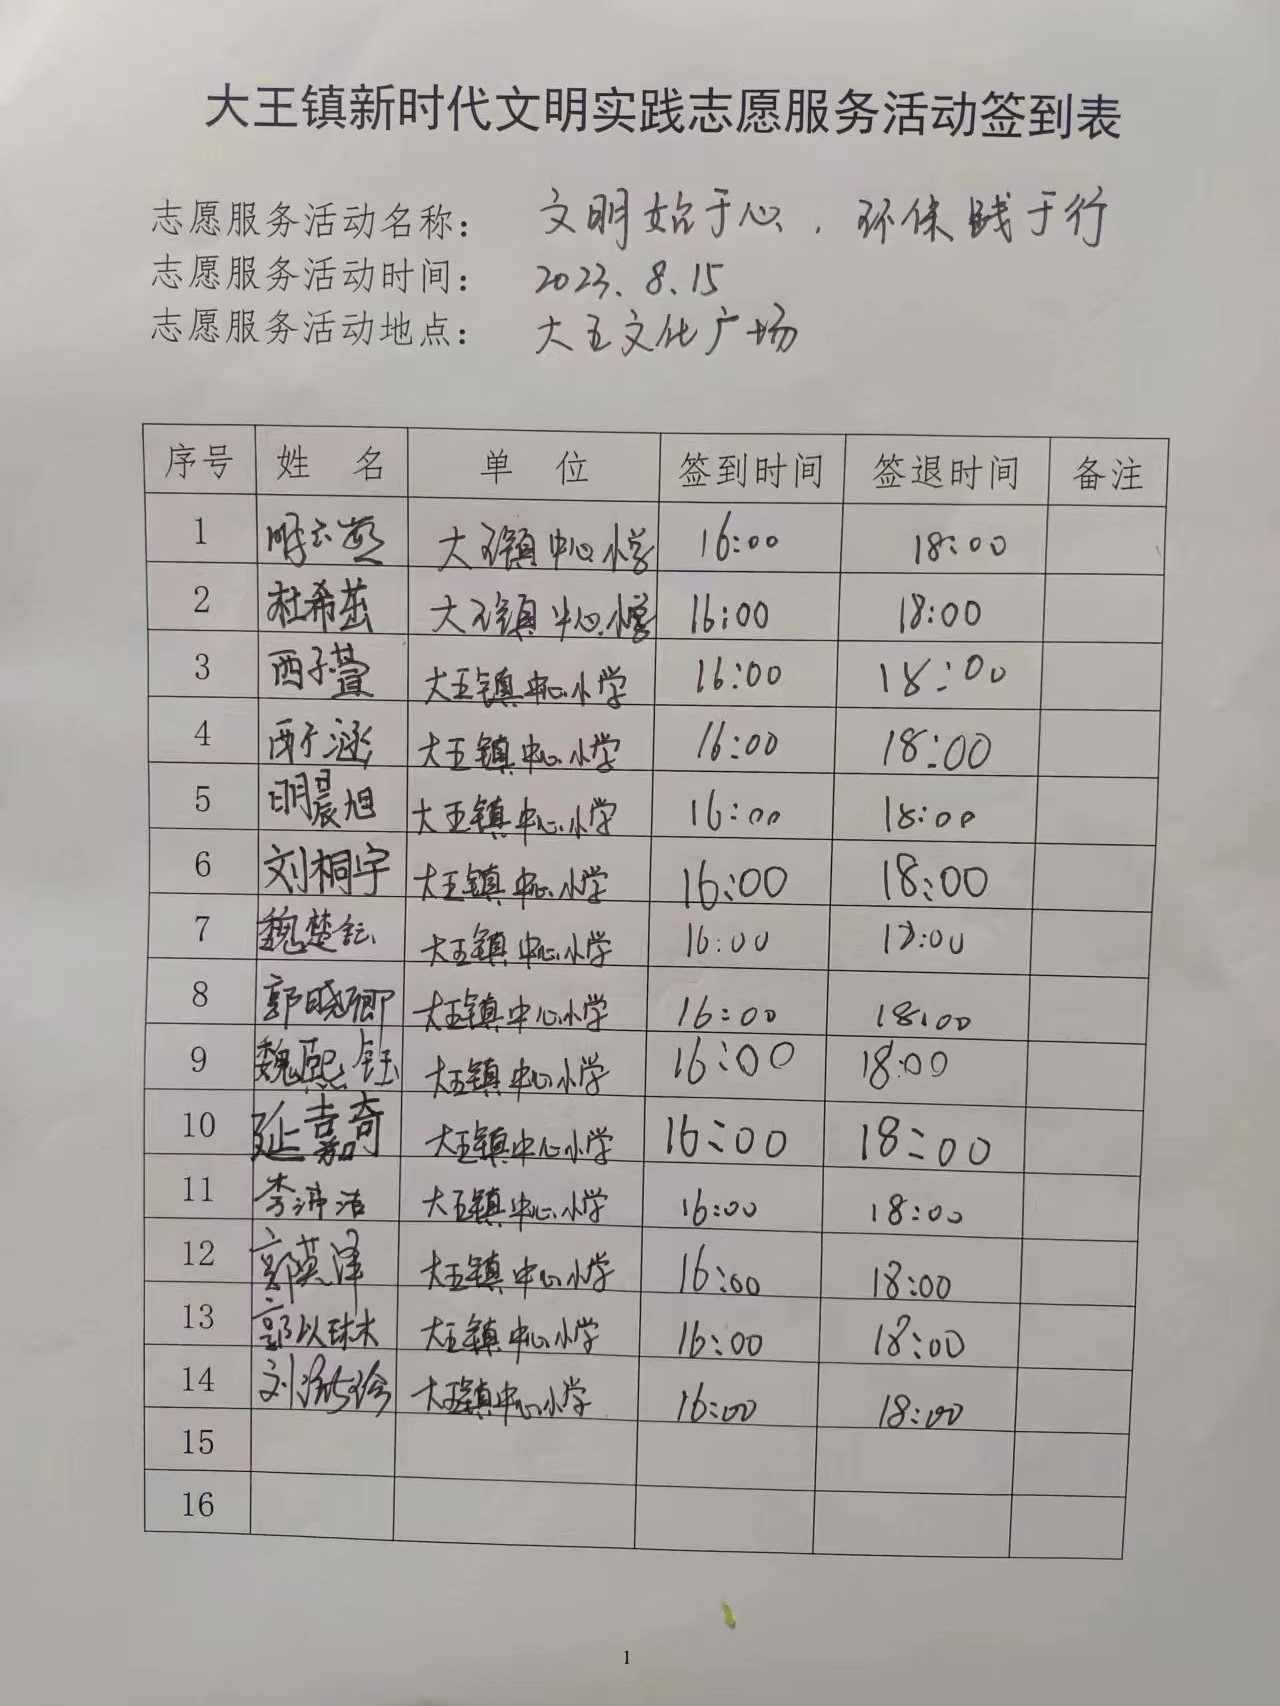 大王镇新时代文明实践志愿服务活动签到表
志愿服务活动名称： 文明始于心，环保践于行
志愿服务活动时间： 2023.8.15
志愿服务活动地点： 大王文化广场
序号 姓 名 单 位 签到时间 签退时间 备注
1 大王镇中心小学 16:00 18:00
2 杜希茁 大王镇中心小学 16:00 18:00
3 西子萱 大王镇中心小学 16:00 18:00
4 西子涵 大王镇中心小学 16:00 18:00
5 明晨旭 大王镇中心小学 16:00 18:00
6 刘桐宇 大王镇中心小学 16:00 18:00
7 魏楚 大王镇中心小学 16:00 18:00
8 郭晓卿 大王镇中心小学 16:00 18:00
9 魏熙钰 大王镇中心小学 16:00 18:00
10 延嘉奇 大王镇中心小学 16:00 18:00
11 李沛洁 大王镇中心小学 16:00 18:00
12 郭英泽 大王镇中心小学 16:00 18:00
13 郭以琳 大王镇中心小学 16:00 18:00
14 刘 大王镇中心小学 16:00 18:00
15
16
1